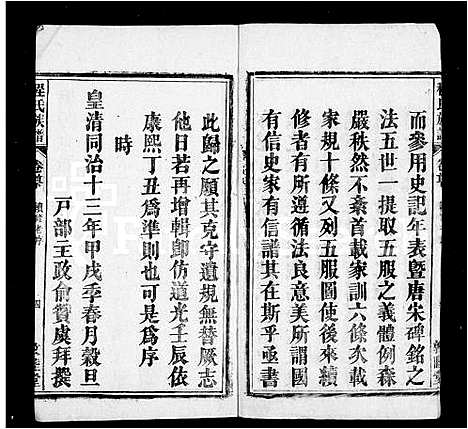 而參用史記年表曁唐宋碑銘之
法五世一提取五服之義體例森
嚴秩然不紊首載家訓六條次載
家規十條又列五服圖使後來繼
修者有所遵循法良意美所謂家
有信史家有信譜其在斯乎亟書
此歸之願其克守遺規無替厥志
他日若再增輯卽仿道光壬辰依
康熙丁丑爲準則也可是爲序
時
皇清同治十三年甲戌季春月穀旦
戸部主政俞贊虞拜撰
程氏族譜
卷首
四